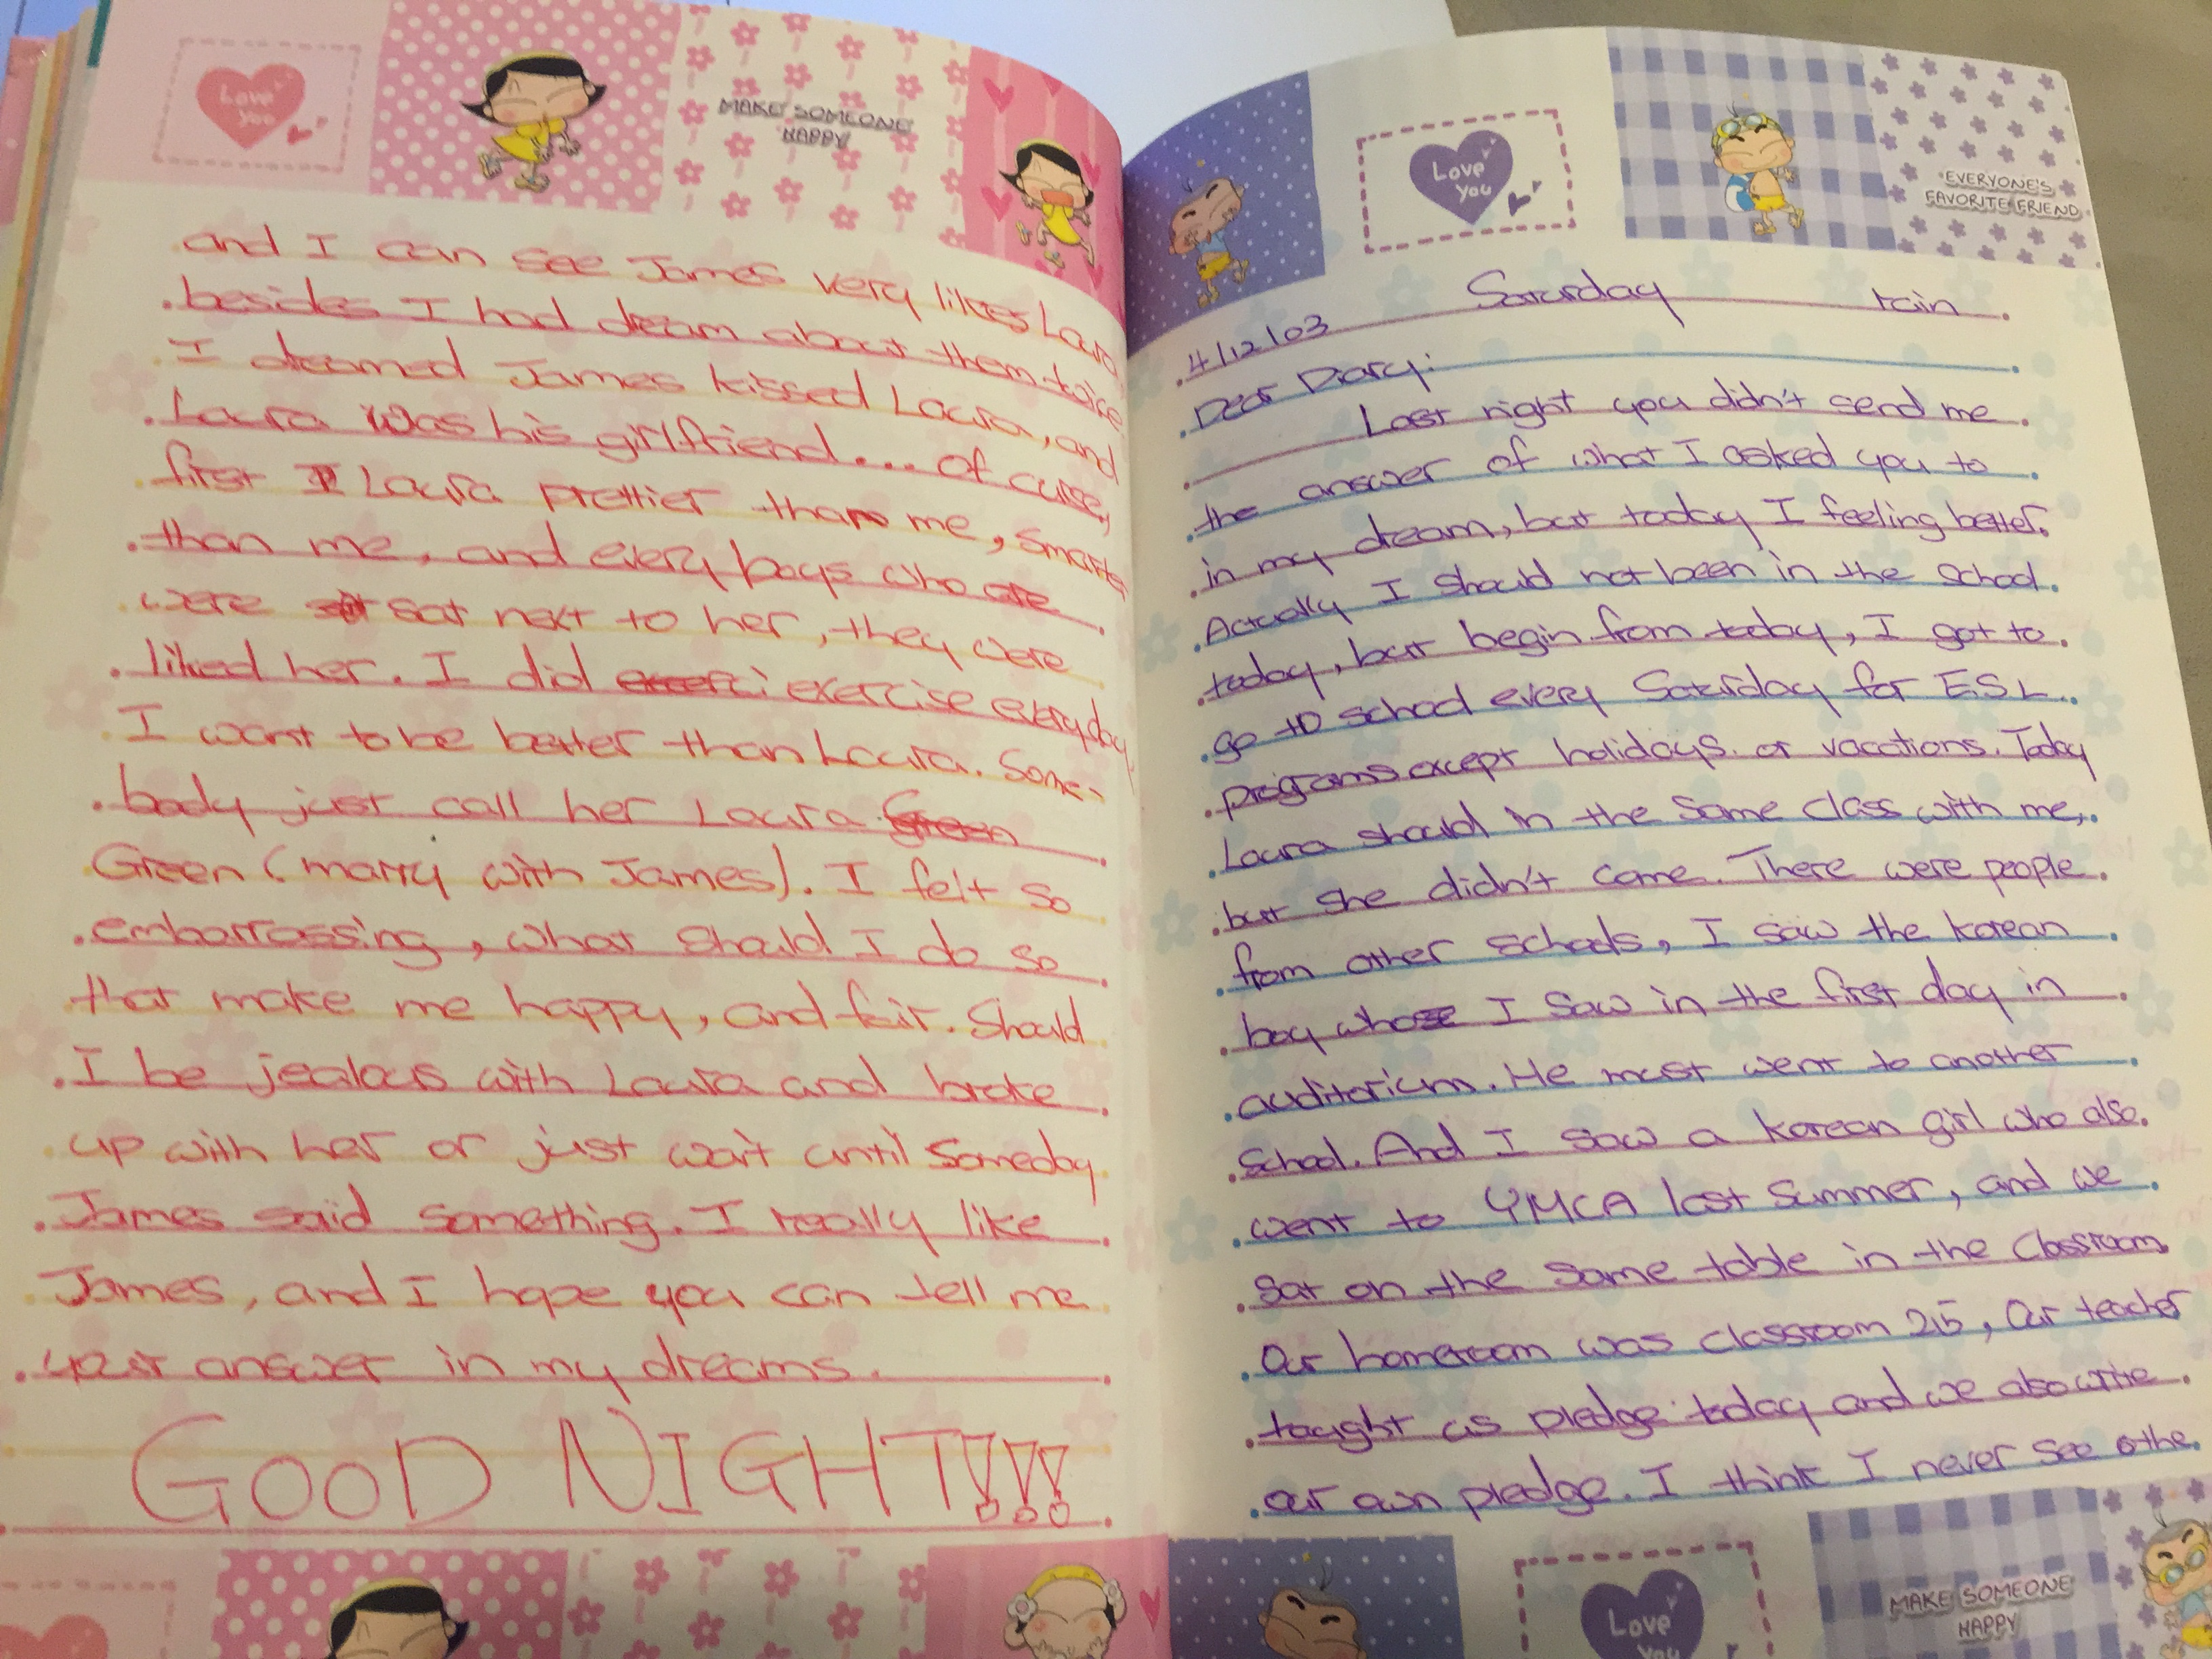 Love you
MAKE SOMEONE
HAPPY
and I can see James very likes Laura,
besides I had dream about them twice
I dreamed James kissed Laura, and
Laura was his girlfriend.... of curse,
first Laura prettier than me, smarter
than me, and every boys who are
were sat next to her, they were
liked her. I did exerci exercise everyday
I want to be better than Laura. Some-
body just call her Laura Green
Green (marry with James). I felt so
embarrassing, what should I do so
that make me happy, and fair. Should
I be jealous with Laura and broke
up with her or just wait until someday
James said something. I really like
James, and I hope you can tell me
your answer in my dreams.
GOOD NIGHT!!!
Love you
EVERYONE'S
FAVORITE FRIEND
4/12/03 Saturday rain
Dear Diary:
Last night you didn't send me
the answer of what I asked you to
in my dream, but today I feeling better.
Actually I should not been in the school
today, but begin from today, I got to
go to school every Saturday for ESL
programs except holidays or vacations. Today
Laura should in the same class with me,
but she didn't come. There were people
from other schools, I saw the korean
boy whose I saw in the first day in
auditorium. He must went to another
school. And I saw a korean girl who also
went to YMCA last summer, and we
sat on the same table in the classroom
Our homeroom was classroom 215, Our teacher
taught us pledge today and we also write
our own pledge. I think I never see othe
Love you
MAKE SOMEONE
HAPPY